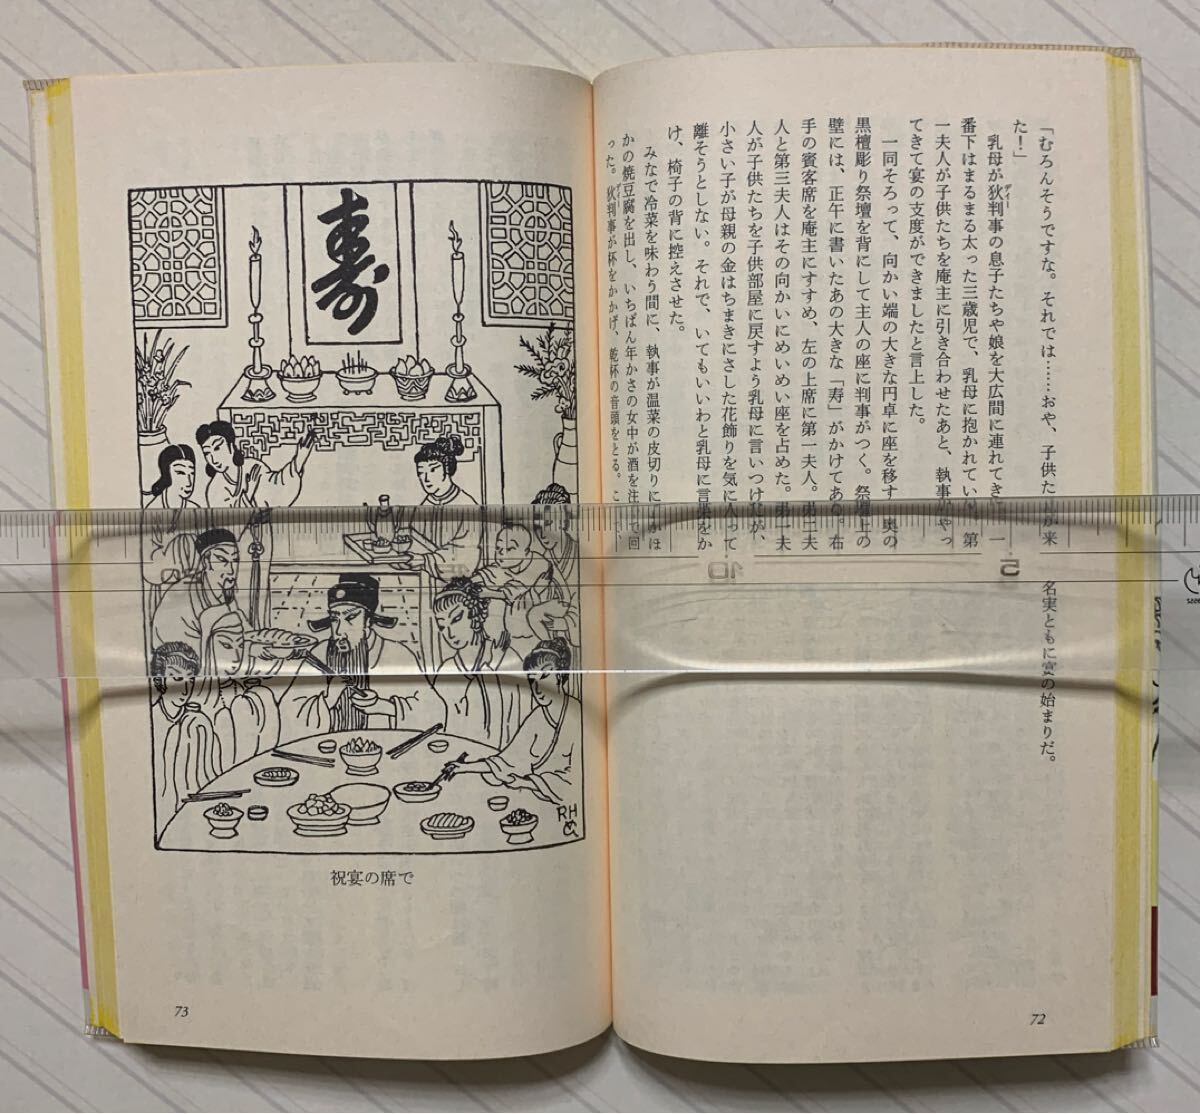 「むろんそうですな。それでは……おや、子供た が来
た！」
乳母が狄判事の息子たちや娘を大広間に連れてき 一
ディー
番下はまるまる太った三歳児で、乳母に抱かれてい 第
一夫人が子供たちを庵主に引き合わせたあと、執事がやっ
てきて宴の支度ができましたと言上した。
一同そろって、向かい端の大きな円卓に座を移す。奥の
黒檀彫り祭壇を背にして主人の座に判事がつく。祭壇上の
壁には、正午に書いたあの大きな「寿」がかけてあり。右
手の賓客席を庵主にすすめ、左の上席に第一夫人。第二夫
人と第三夫人はその向かいにめいめい座を占めた。第一夫
人が子供たちを子供部屋に戻すよう乳母に言いつけ が、
小さい子が母親の金はちまきにさした花飾りを気に入って
離そうとしない。それで、いてもいいわと乳母に言葉をか
け、椅子の背に控えさせた。
みなで冷菜を味わう間に、執事が温菜の皮切りに は
かの焼豆腐を出し、いちばん年かさの女中が酒を注いで回
った。狄判事が杯をかかげ、乾杯の音頭をとる。こ
ディー
名実ともに宴の始まりだ。
72
寿
RH
祝宴の席で
73
5
10
15